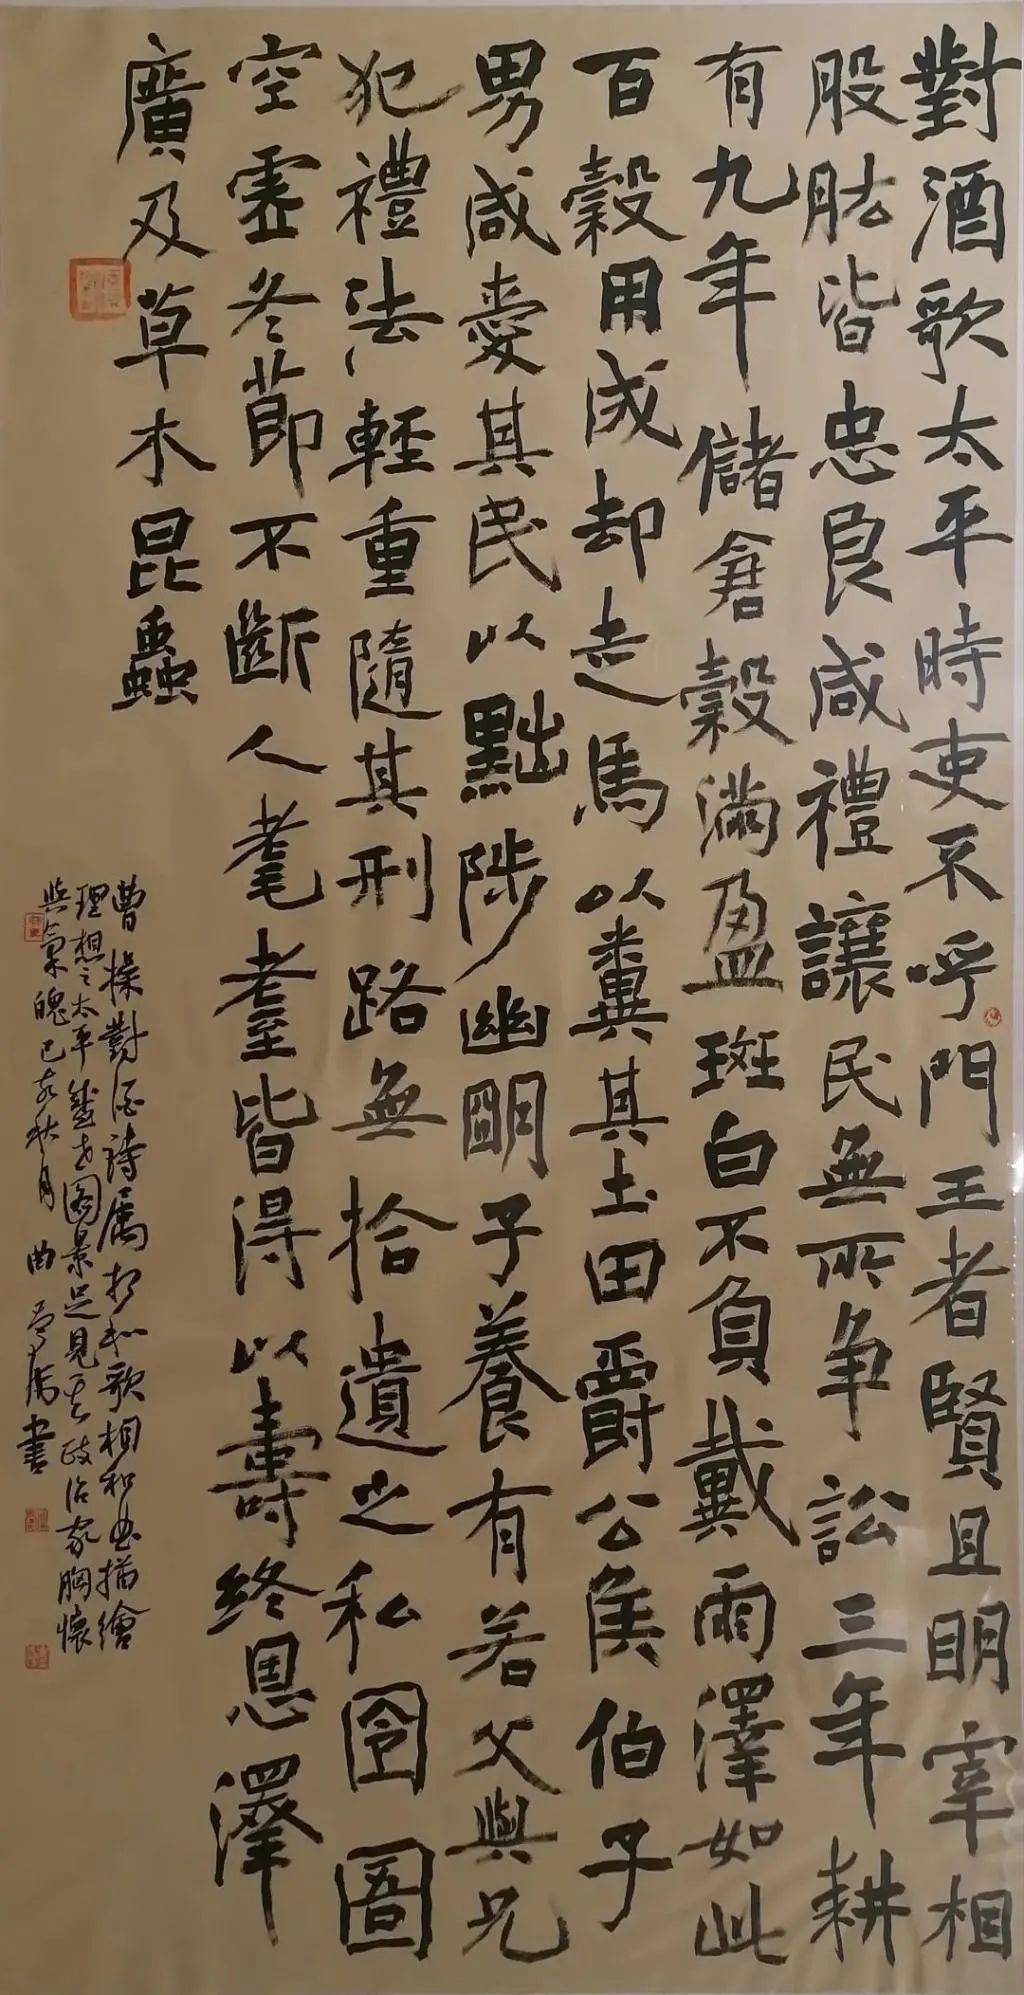 對酒歌太平時吏不呼門王者賢且明宰相
股肱皆忠良咸禮讓民無所爭訟三年耕
有九年儲倉穀滿盈斑白不負戴雨澤如此
百穀用成却走馬以糞其土田爵公侯伯子
男咸愛其民以黜陟幽明子養有若父與兄
犯禮法輕重隨其刑路無拾遺之私囹圄
空虛冬節不斷人耄耋皆得以壽終恩澤
廣及草木昆蟲
曹操對酒詩屬相和歌相和曲描繪
理想之太平盛世圖景足見其政治家胸懷
與氣魄己亥秋月曲
書